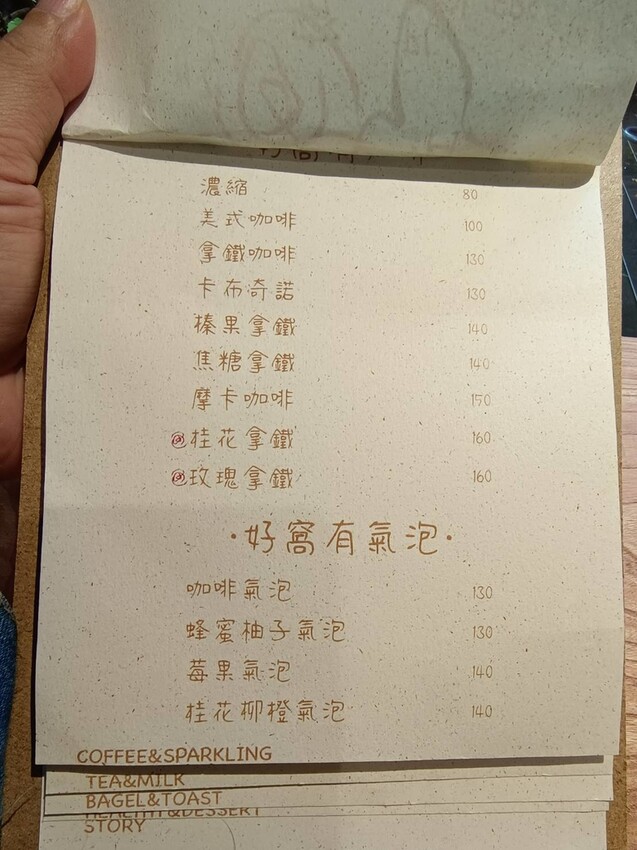 濃縮 80
美式咖啡 100
拿鐵咖啡 130
卡布奇諾 130
榛果拿鐵 140
焦糖拿鐵 140
摩卡咖啡 150
桂花拿鐵 160
玫瑰拿鐵 160
·好窩有氣泡·
咖啡氣泡 130
蜂蜜柚子氣泡 130
莓果氣泡 140
桂花柳橙氣泡 140
COFFEE&SPARKLING
TEA&MILK
BAGEL&TOAST
HEALTHY&DESSERT
STORY